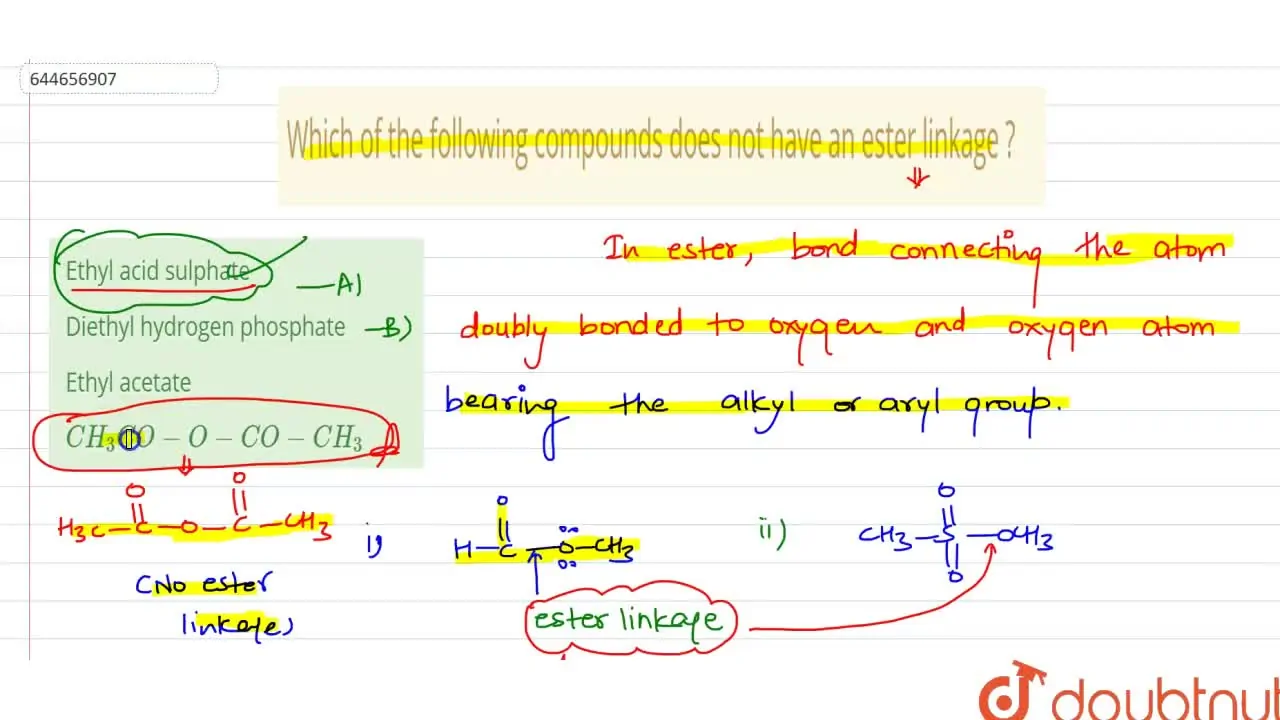 644656907
Which of the following compounds does not have an ester linkage ?
Ethyl acid sulphate —A)
Diethyl hydrogen phosphate —B)
Ethyl acetate
CH₃CO – O – CO – CH₃
In ester, bond connecting the atom
doubly bonded to oxygen and oxygen atom
bearing the alkyl or aryl group.
O O
H₃C—C—O—C—CH₃
(No ester
linkage)
i)
O
H—C—O—CH₃
ester linkage
ii)
O
CH₃—S—OCH₃
O
doubtnut